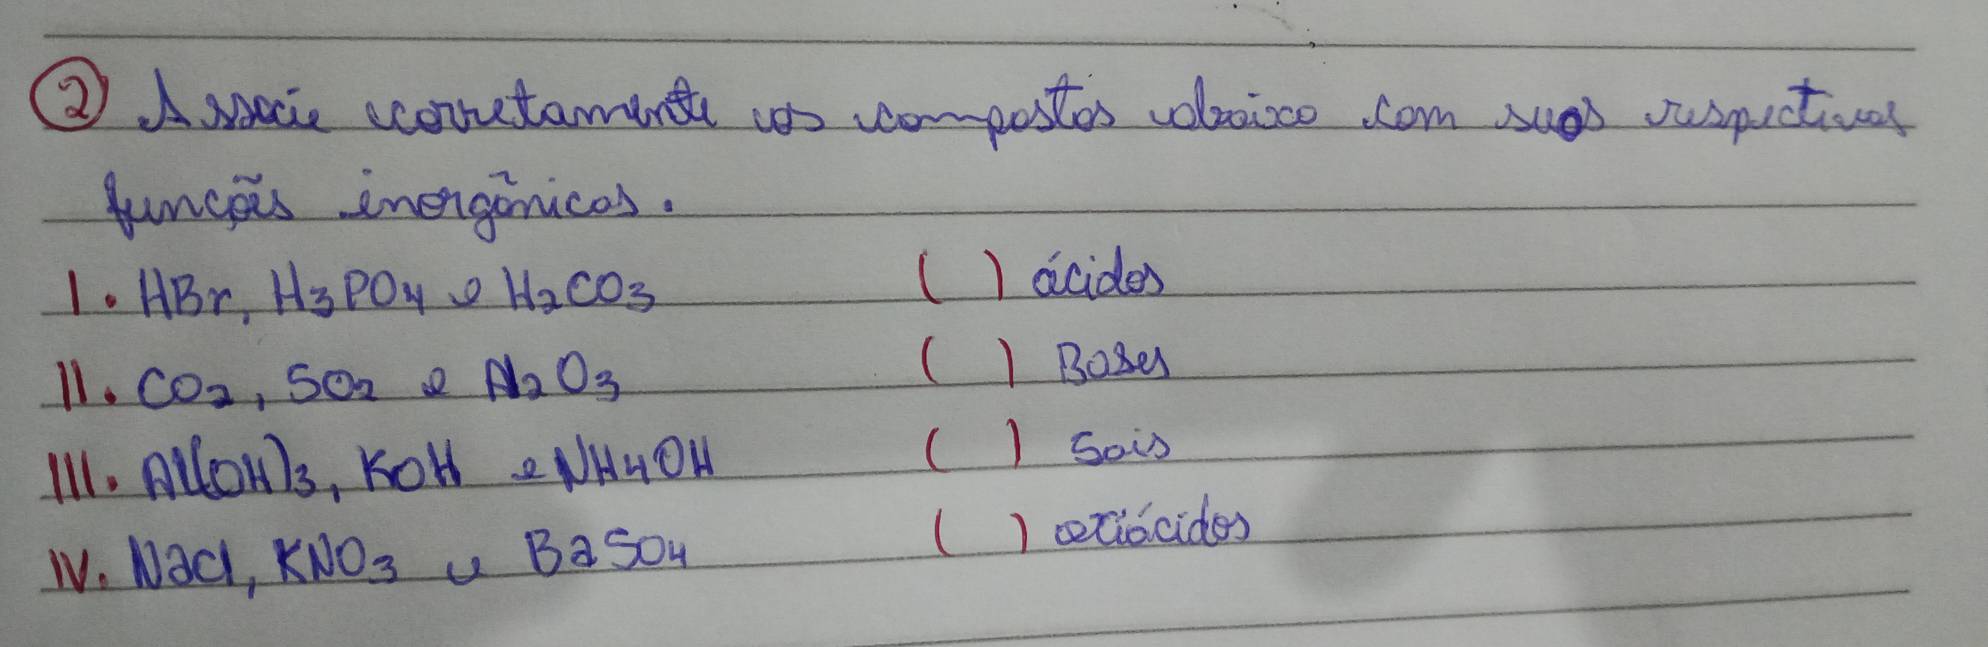 ② Associe corretamente os compostos abaixo com suas respectivas
funções inorgânicas.
I. HBr, H3PO4 e H2CO3 ( ) ácidos
II. CO2, SO2 e Al2O3 ( ) Bases
III. Al(OH)3, KOH e NH4OH ( ) Sais
IV. NaCl, KNO3 e BaSO4 ( ) oxiácidos